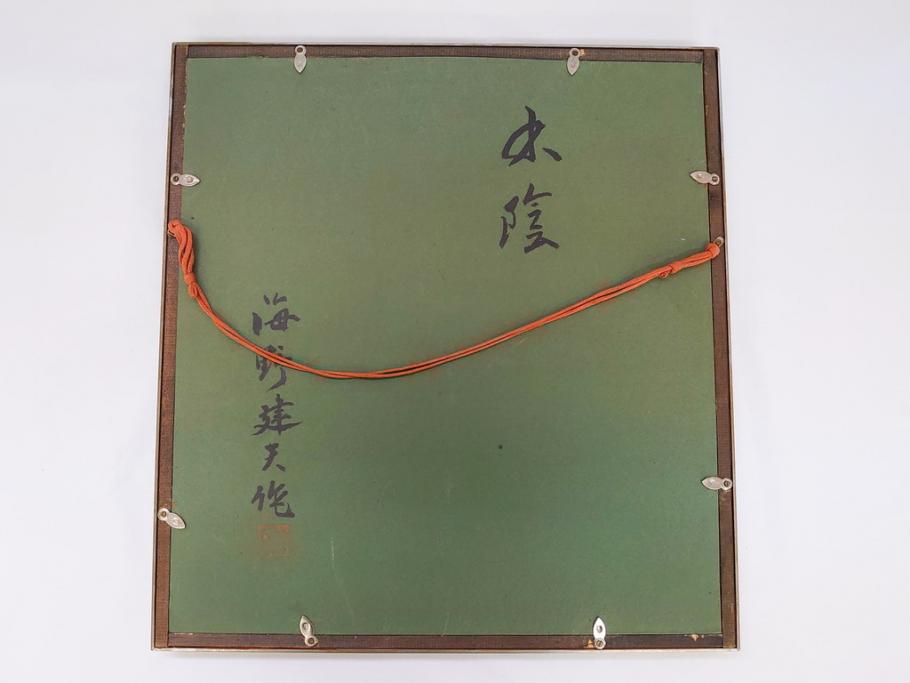 木陰
海野建夫作